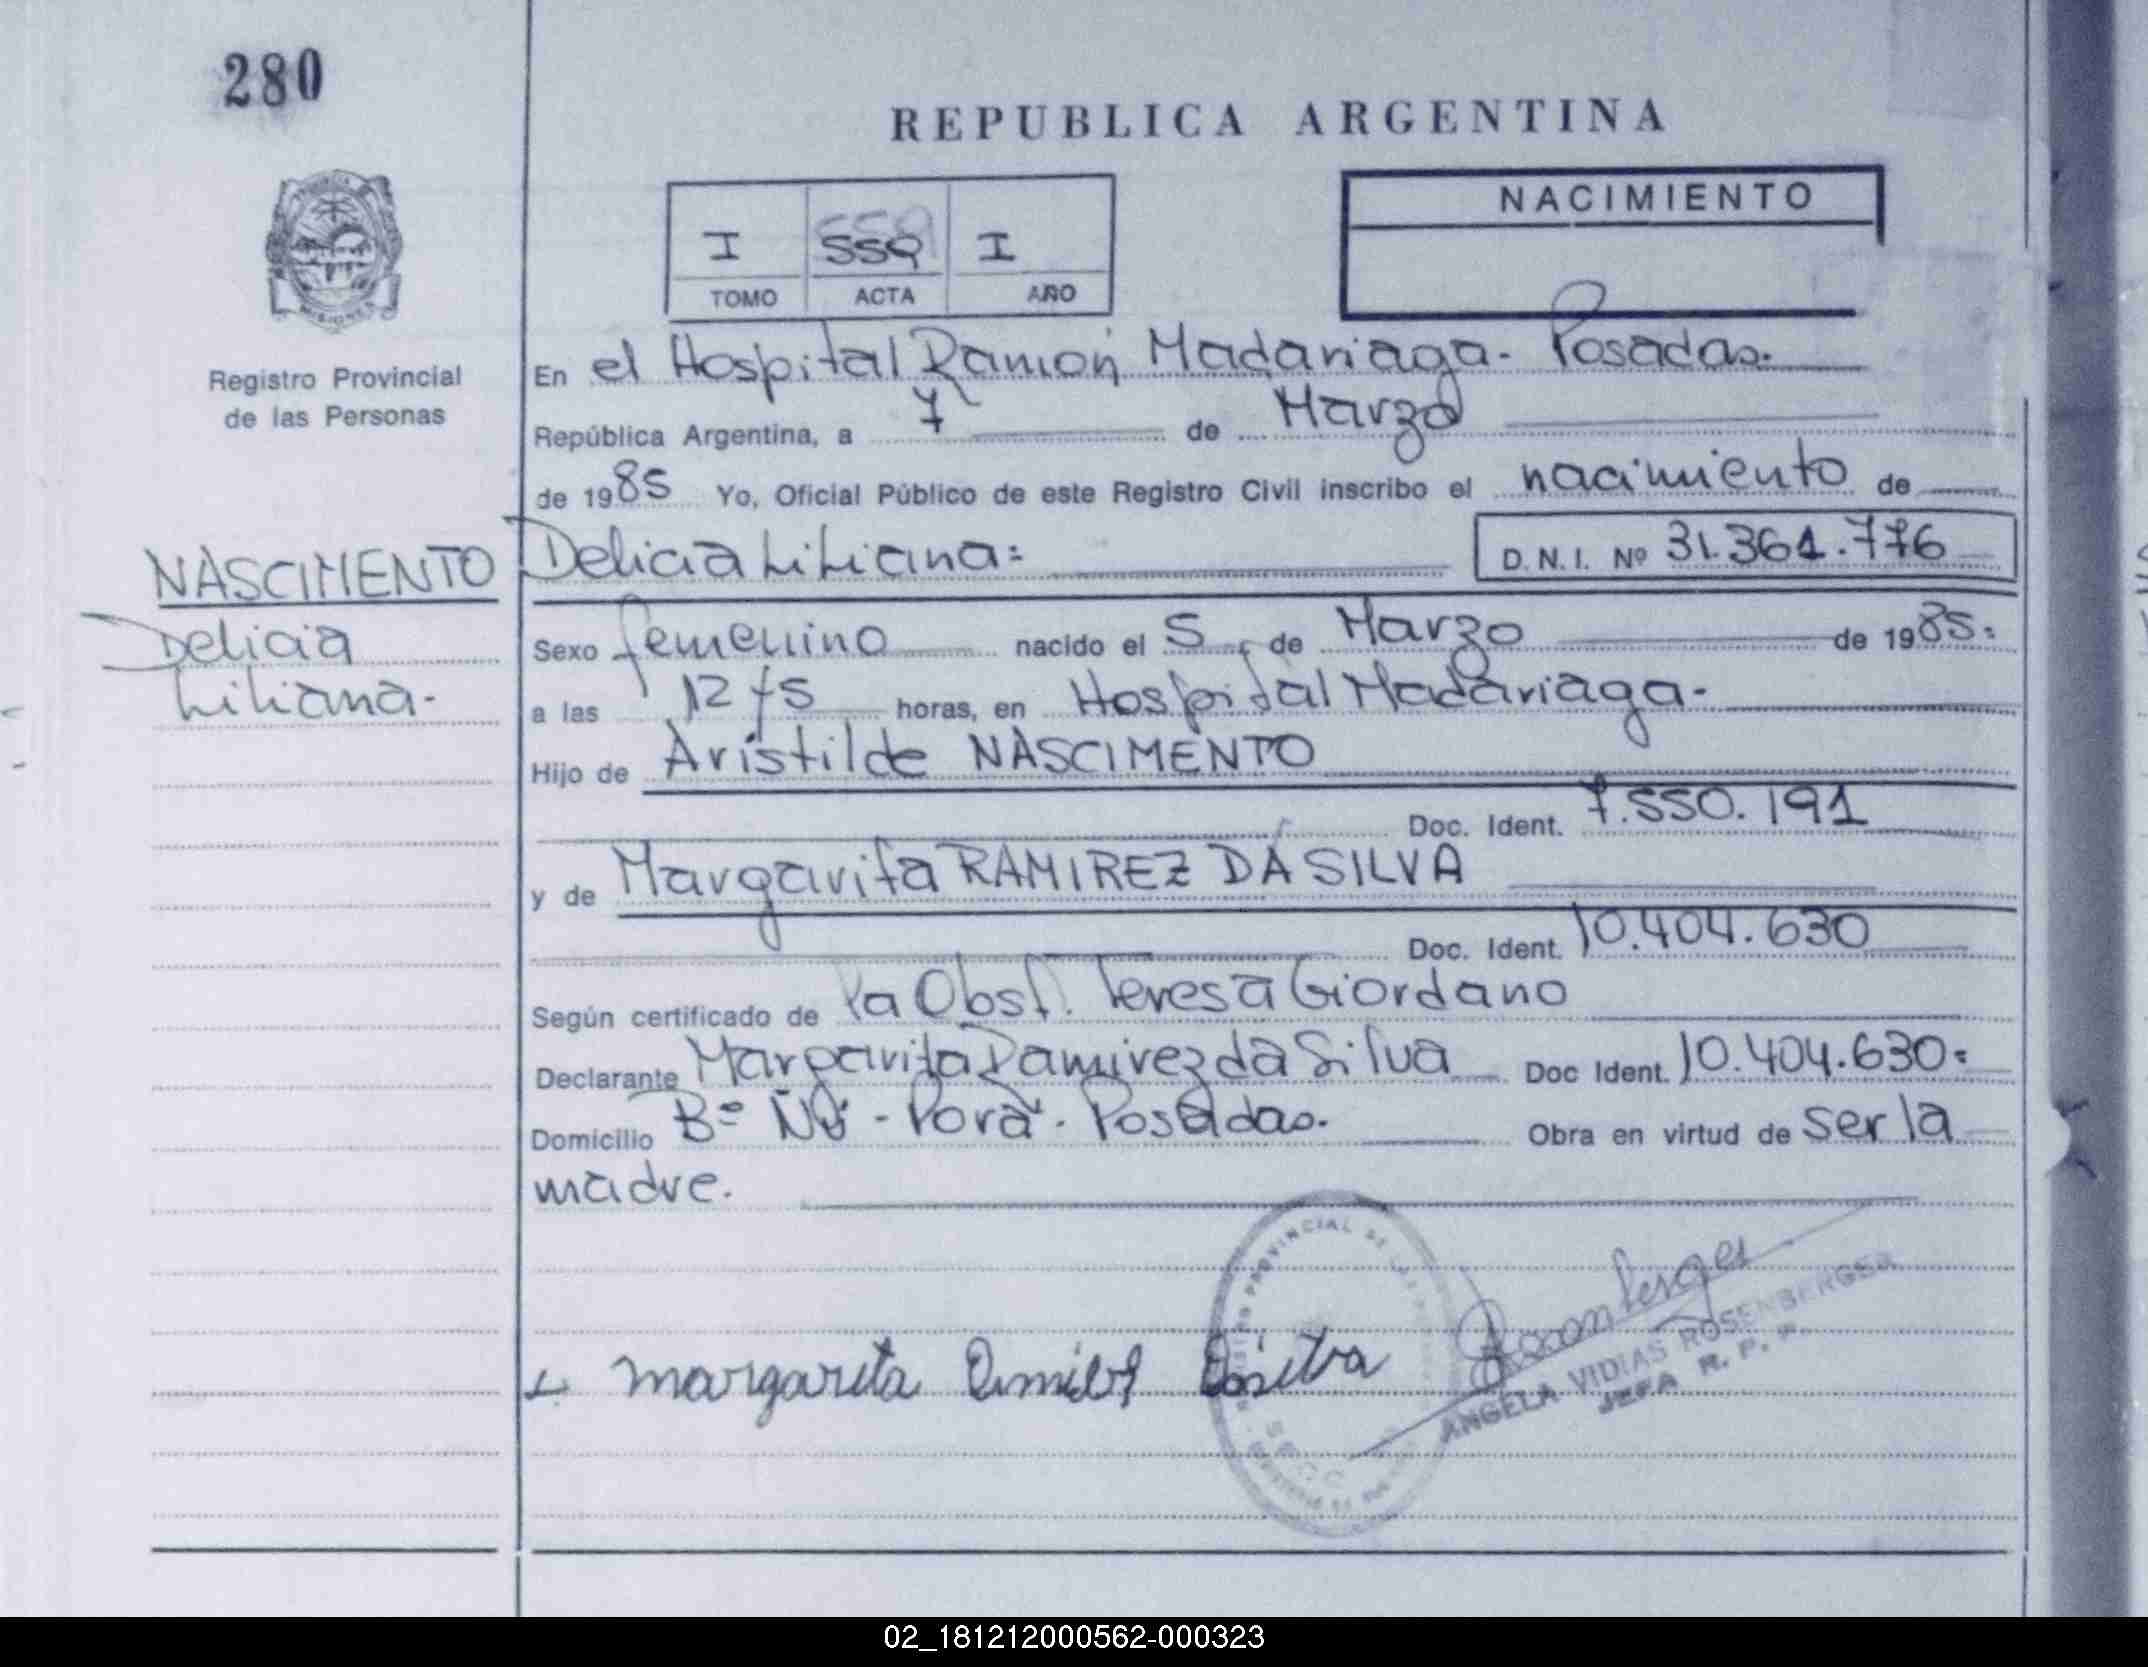 280
REPUBLICA ARGENTINA
NACIMIENTO
I 559 I
TOMO ACTA AÑO
MISIONES
Registro Provincial
de las Personas
En el Hospital Ramón Madariaga - Posadas.
República Argentina, a 7 de Marzo
de 1985 Yo, Oficial Público de este Registro Civil inscribo el nacimiento de
NASCIMENTO
Delicia
Liliana.-
Delicia Liliana=
D.N.I. Nº 31.361.776
Sexo femenino nacido el 5 de Marzo de 1985.
a las 12 y 5 horas, en Hospital Madariaga-
Hijo de Aristilde NASCIMENTO
Doc. Ident. 7.550.191
y de Margarita RAMIREZ DA SILVA
Doc. Ident. 10.404.630
Según certificado de la Obst. Teresa Giordano
Declarante Margarita Ramirez da Silva Doc Ident. 10.404.630.
Domicilio Bº Ñu - Porá - Posadas. Obra en virtud de ser la
madre.
margarita
ANGELA VIDIAS ROSENBERGER
JEFA R. P. P.
02_181212000562-000323